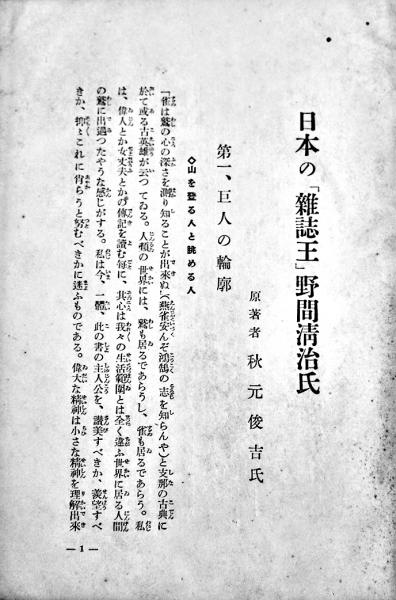 日本の「雑誌王」野間清治氏
原著者 秋元俊吉氏
第一、巨人の輪廓
◇山を登る人と眺める人
「雀は鷲の心の深さを測り知ることが出來ぬ」(燕雀安んぞ鴻鵠の志を知らんや)と支那の古典に
於て或る古英雄が云つてゐる。人類の世界には、鷲も居るであらうし、雀も居るであらう。私
は、偉人とか女丈夫とかの傳記を讀む毎に、其心は我々の生活範圍とは全く違ふ世界に居る人間
の鷲に出遇つたやうな感じがする。私は今、一體、此の書の主人公を、讃美すべきか、羨望すべ
きか、抑〻これに肖らうと努むべきかに迷ふものである。偉大な精神は小さな精神を理解出來
— 1 —